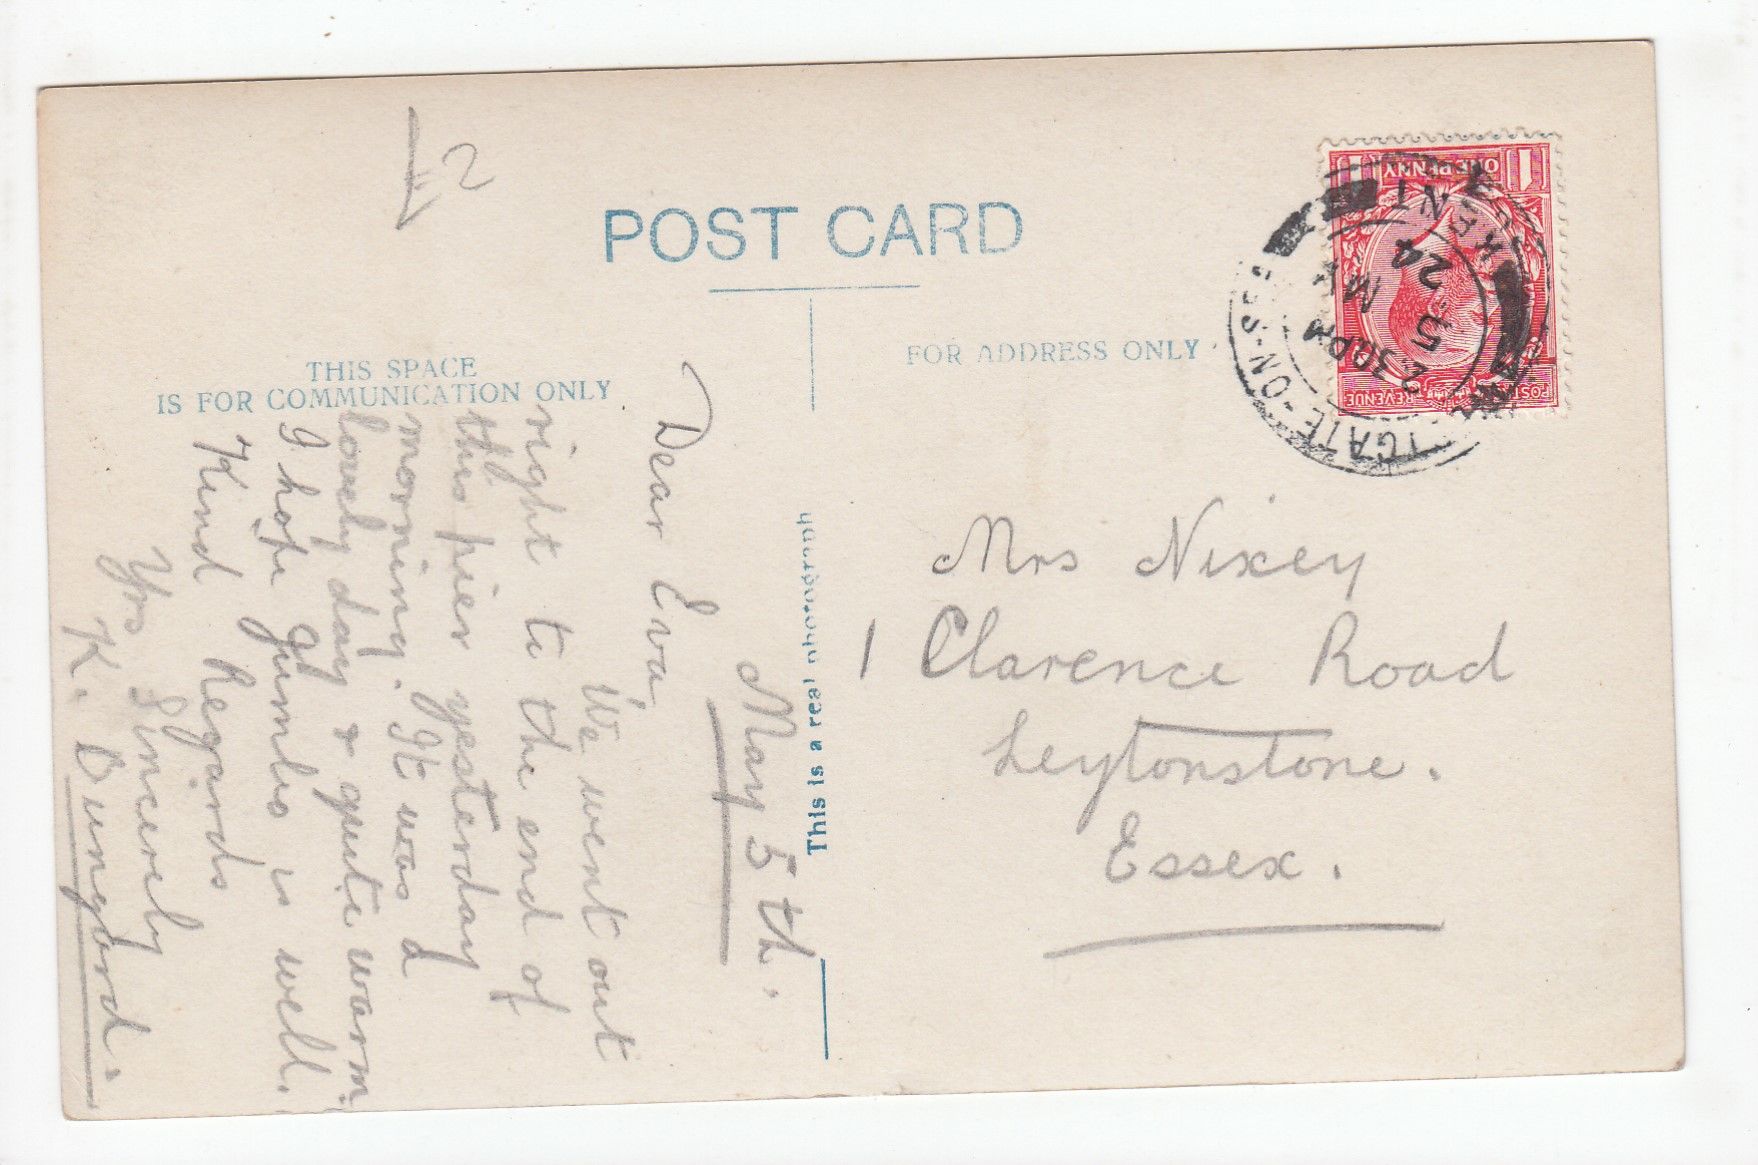 POST CARD
THIS SPACE
IS FOR COMMUNICATION ONLY
FOR ADDRESS ONLY
This is a real photograph
May 5th.
Dear Eva,
We went out
right to the end of
the pier yesterday
morning. It was a
lovely day & quite warm.
I hope Jumbo is well.
Kind Regards
Yrs Sincerely
K. Dungord.
Mrs Nixey
1 Clarence Road
Leytonstone.
Essex.
ONE PENNY
1 1
POSTAGE REVENUE
GATE-ON-SEA
2.30 PM
5 MY
24